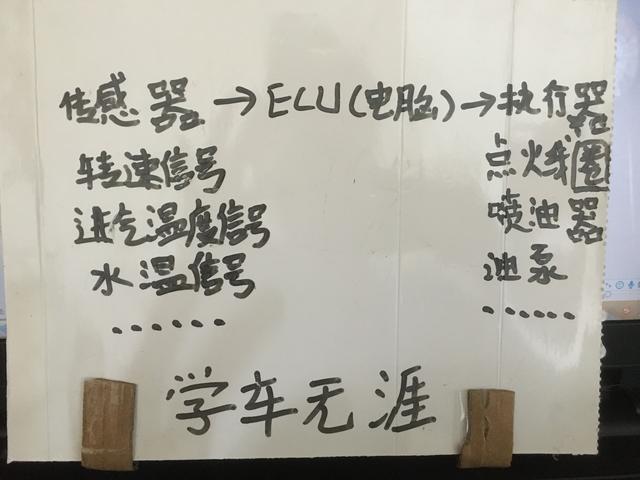 传感器→ECU(电脑)→执行器
转速信号 点火线圈
进气温度信号 喷油器
水温信号 油泵
...... ......
学车无涯